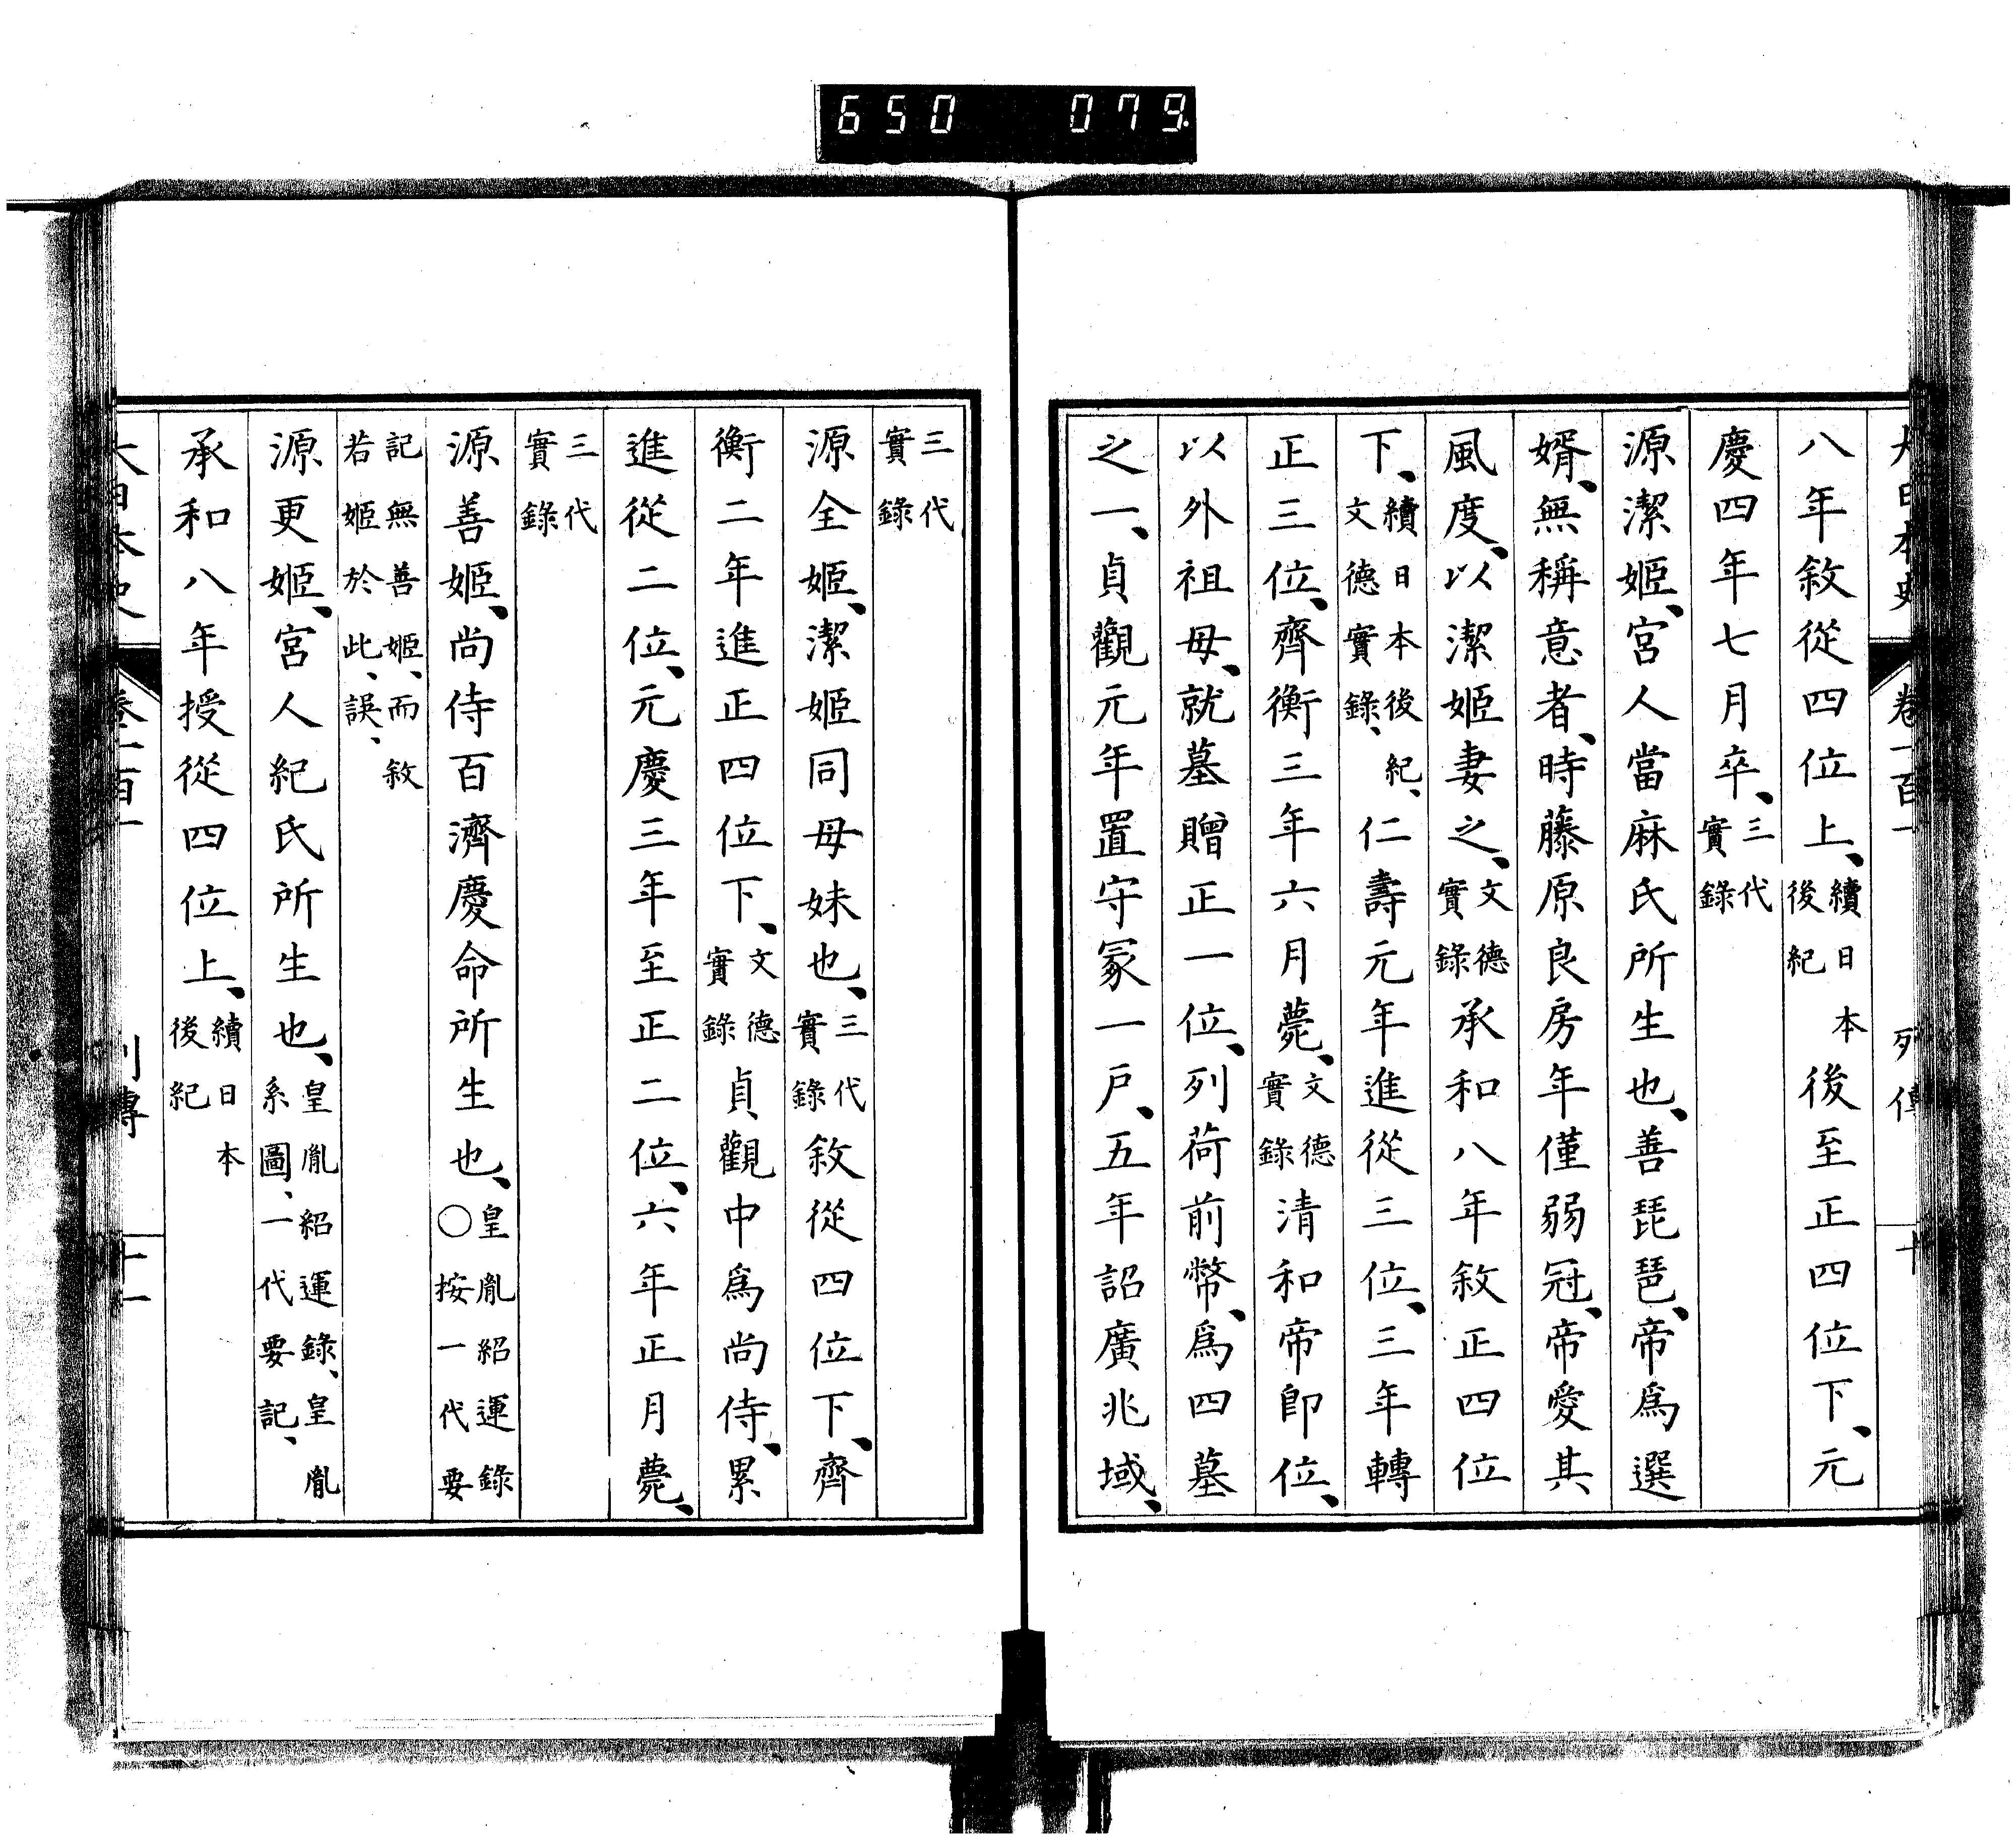 650 079
大日本史 卷一百一 列傳 十
八年敘從四位上、續日本後紀後至正四位下、元
慶四年七月卒、三代實錄
源潔姬、宮人當麻氏所生也、善琵琶、帝爲選
婿、無稱意者、時藤原良房年僅弱冠、帝愛其
風度、以潔姬妻之、文德實錄承和八年敘正四位
下、續日本後紀、文德實錄、仁壽元年進從三位、三年轉
正三位、齊衡三年六月薨、文德實錄清和帝卽位、
以外祖母、就墓贈正一位、列荷前幣、爲四墓
之一、貞觀元年置守冢一戶、五年詔廣兆域、
三代實錄
源全姬、潔姬同母妹也、三代實錄敘從四位下、齊
衡二年進正四位下、文德實錄貞觀中爲尚侍、累
進從二位、元慶三年至正二位、六年正月薨、
三代實錄
源善姬、尚侍百濟慶命所生也、皇胤紹運錄○按一代要
記無善姬、而敘若姬於此、誤、
源更姬、宮人紀氏所生也、皇胤紹運錄、皇胤系圖、一代要記、
承和八年授從四位上、續日本後紀
大日本史 卷一百一 列傳 十一